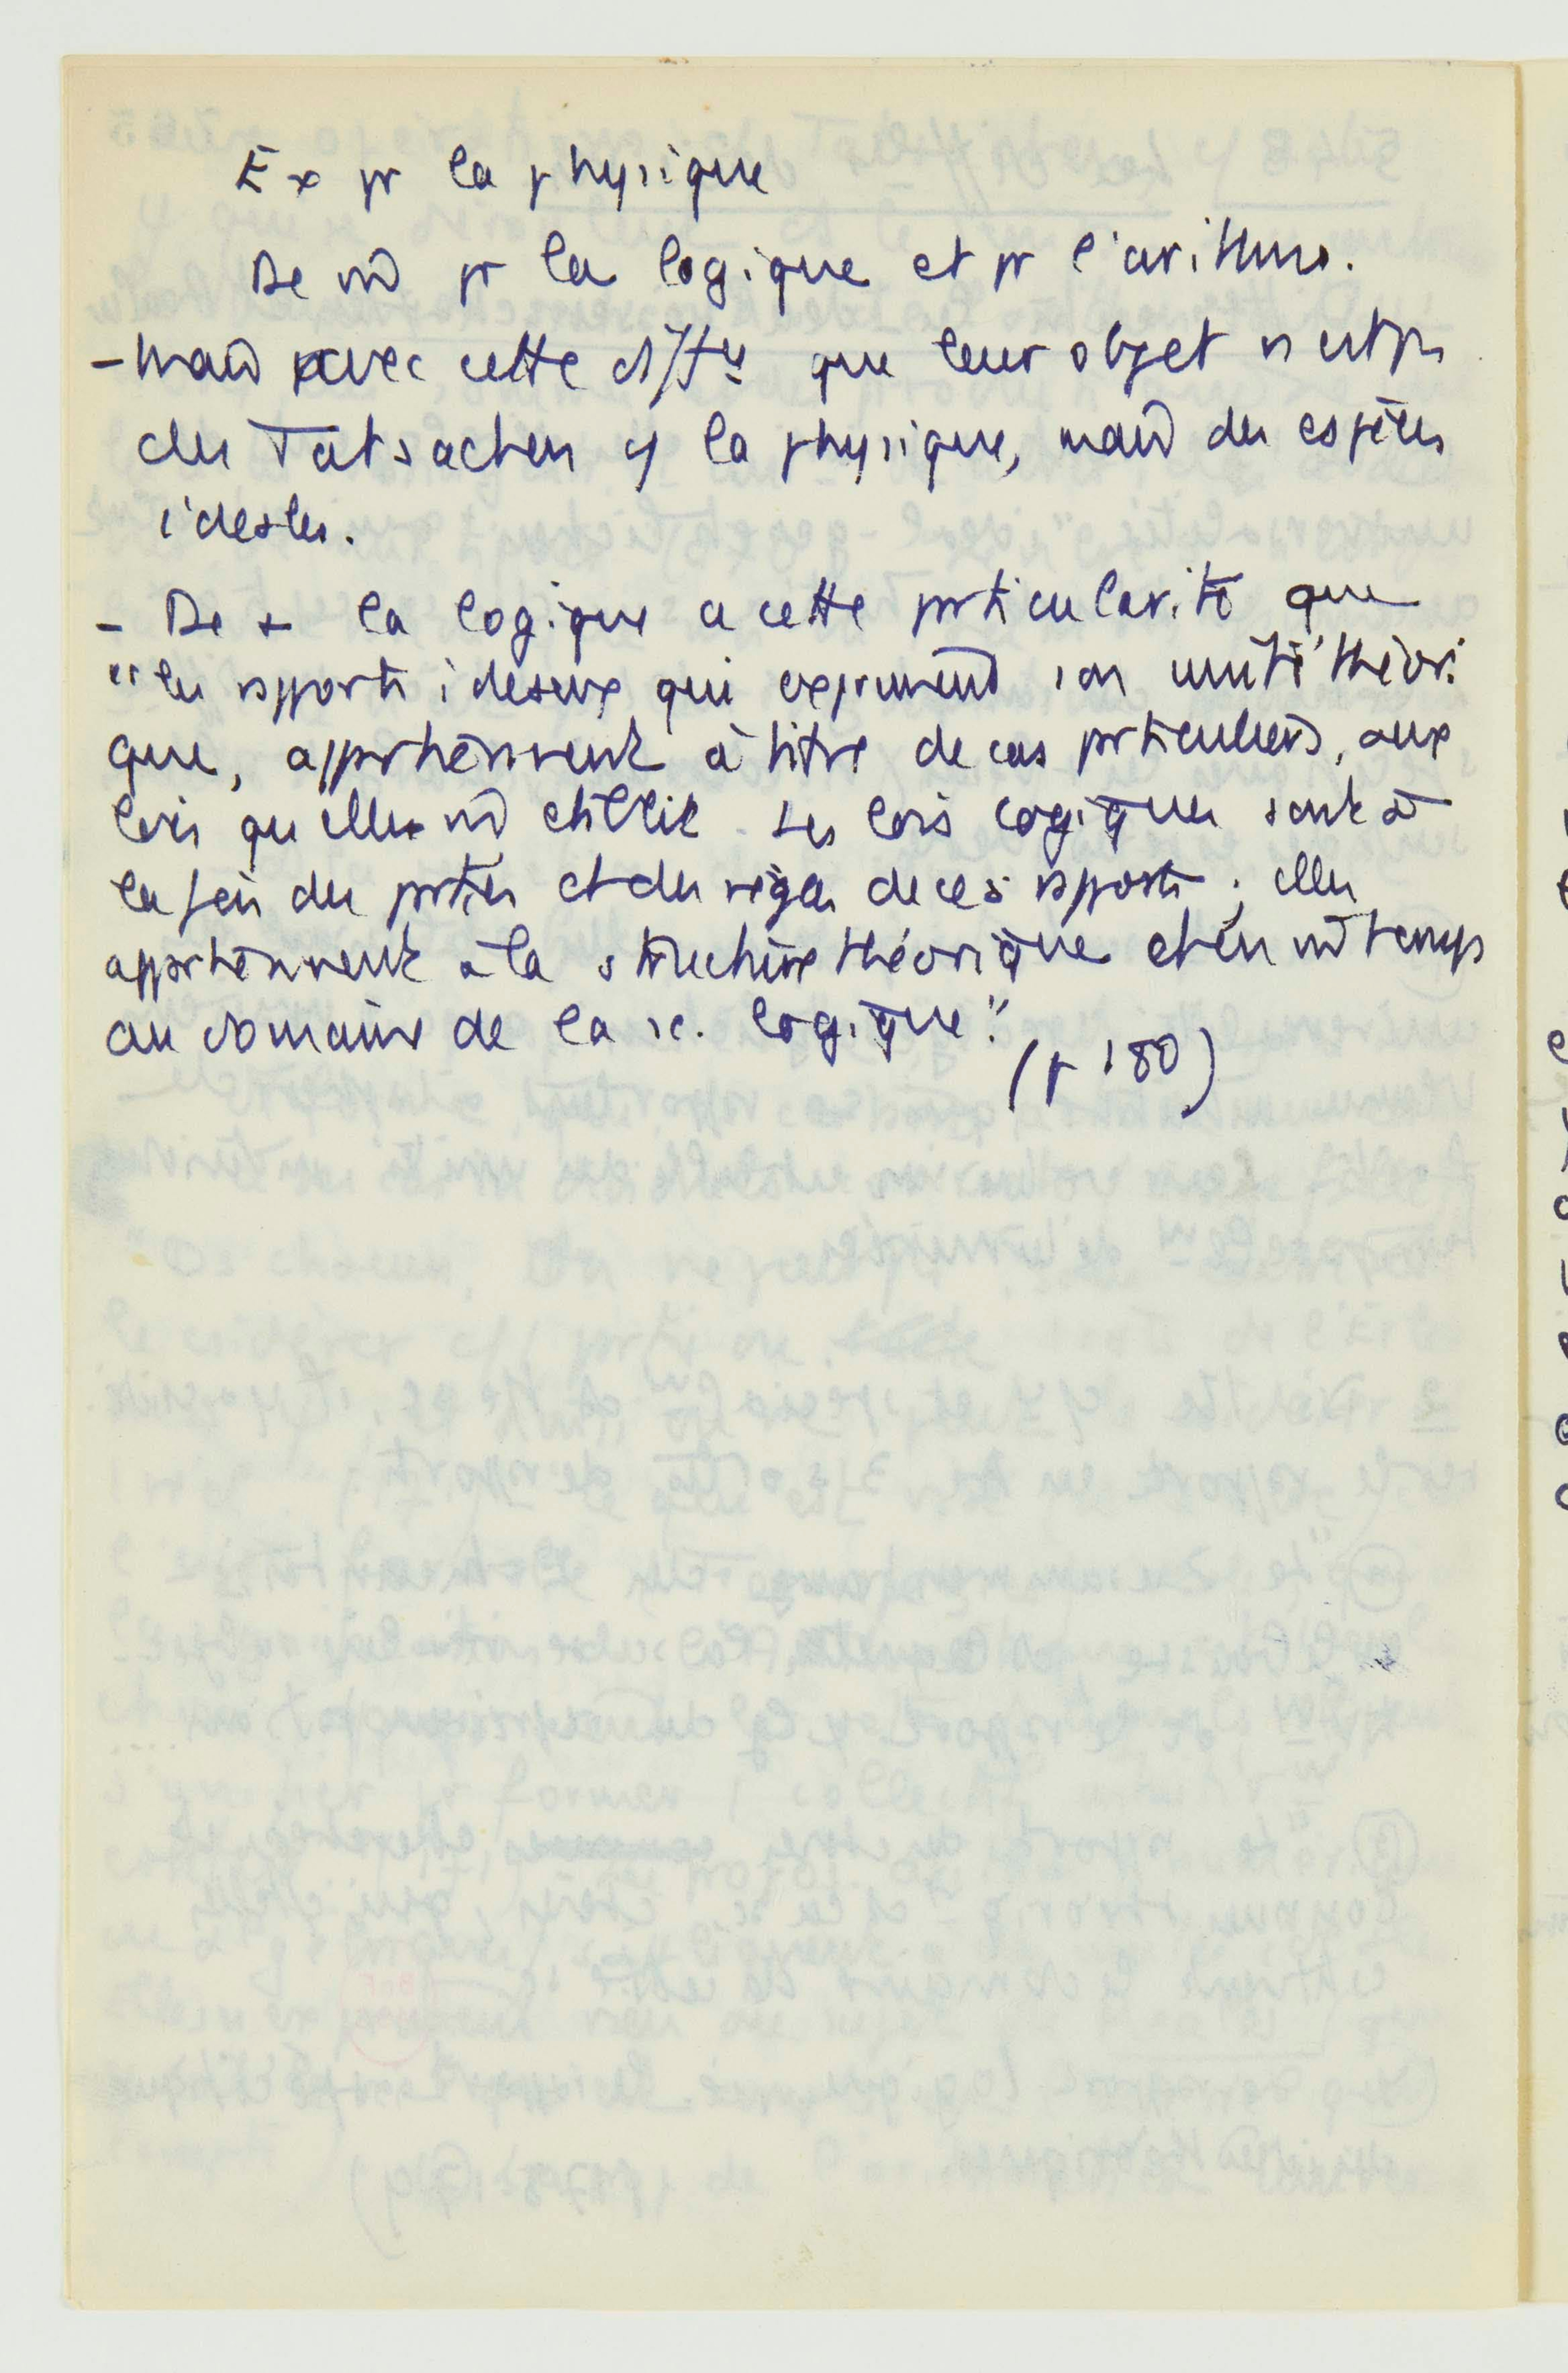 Ex pr la physique
De m̂ pr la logique et pr l'arithm.
- mais avec cette diffce que leur objet n'est pas
des Tatsachen cf la physique, mais des espèces
idéales.
- De + la logique a cette prticularité que
"les rapports idéaux qui expriment son unité théori
que, appartiennent à titre de cas prticuliers, aux
lois qu'elle m̂ établit. Les lois logiques sont à
la fois des parties et des règles de ces rapports ; elles
appartiennent à la structure théorique et en m̂ temps
au domaine de la sc. logique."
(p 180)